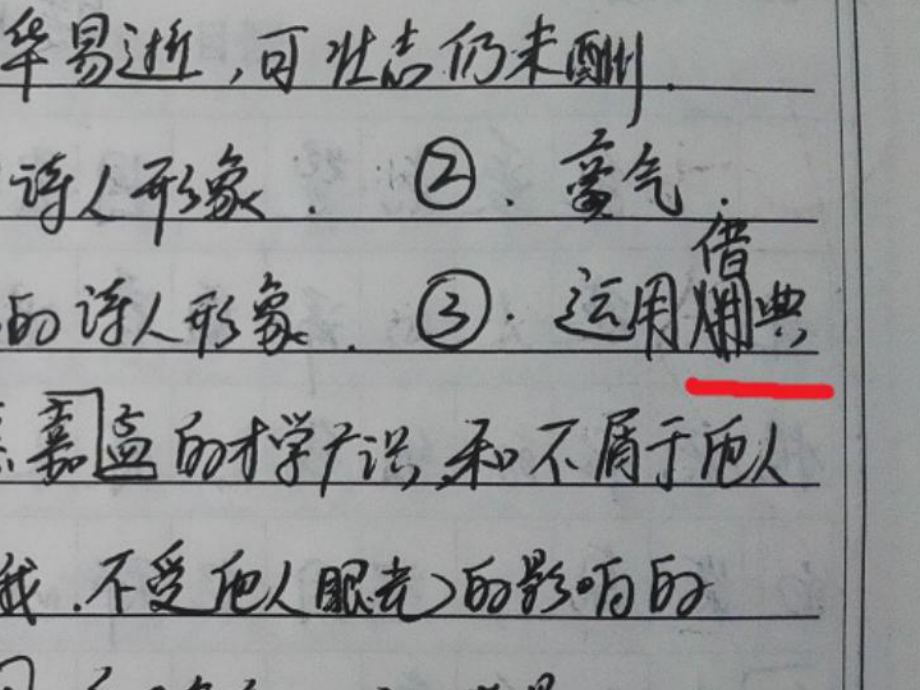 华易逝,可壮志仍未酬.
诗人形象. ②. 蛮气.
的诗人形象. ③. 运用借典
嘉孟的才学广识,和不屑于他人
我.不受他人眼光的影响的